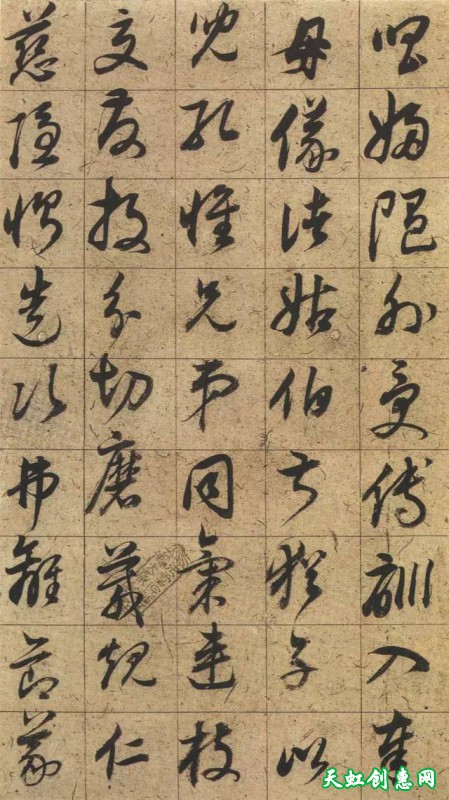 唱婦隨外受傅訓入奉
母儀諸姑伯叔猶子比
兒孔懷兄弟同氣連枝
交友投分切磨箴規仁
慈隱惻造次弗離節義
天虹创意网